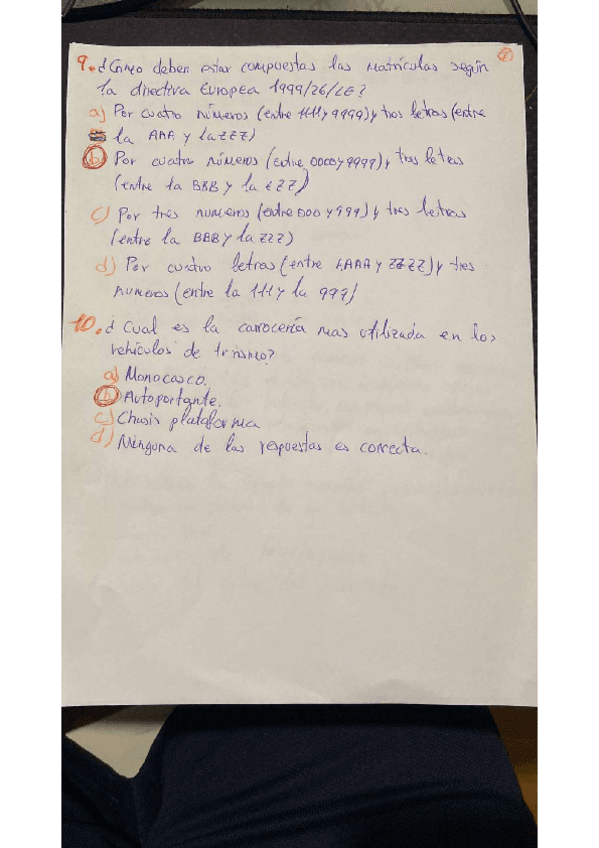 2
9. ¿Cómo deben estar compuestas las matrículas según
la directiva Europea 1999/26/CE?
a) Por cuatro números (entre 1111 y 9999) y tres letras (entre
la AAA y la ZZZ)
b) Por cuatro números (entre 0000 y 9999), y tres letras
(entre la BBB y la ZZZ)
c) Por tres numeros (entre 000 y 999) y tres letras
(entre la BBB y la ZZZ)
d) Por cuatro letras (entre AAAA y ZZZZ) y tres
numeros (entre la 111 y la 999)
10. ¿Cual es la carrocería mas utilizada en los
vehículos de turismo?
a) Monocasco.
b) Autoportante.
c) Chasis plataforma
d) Ninguna de las respuestas es correcta.